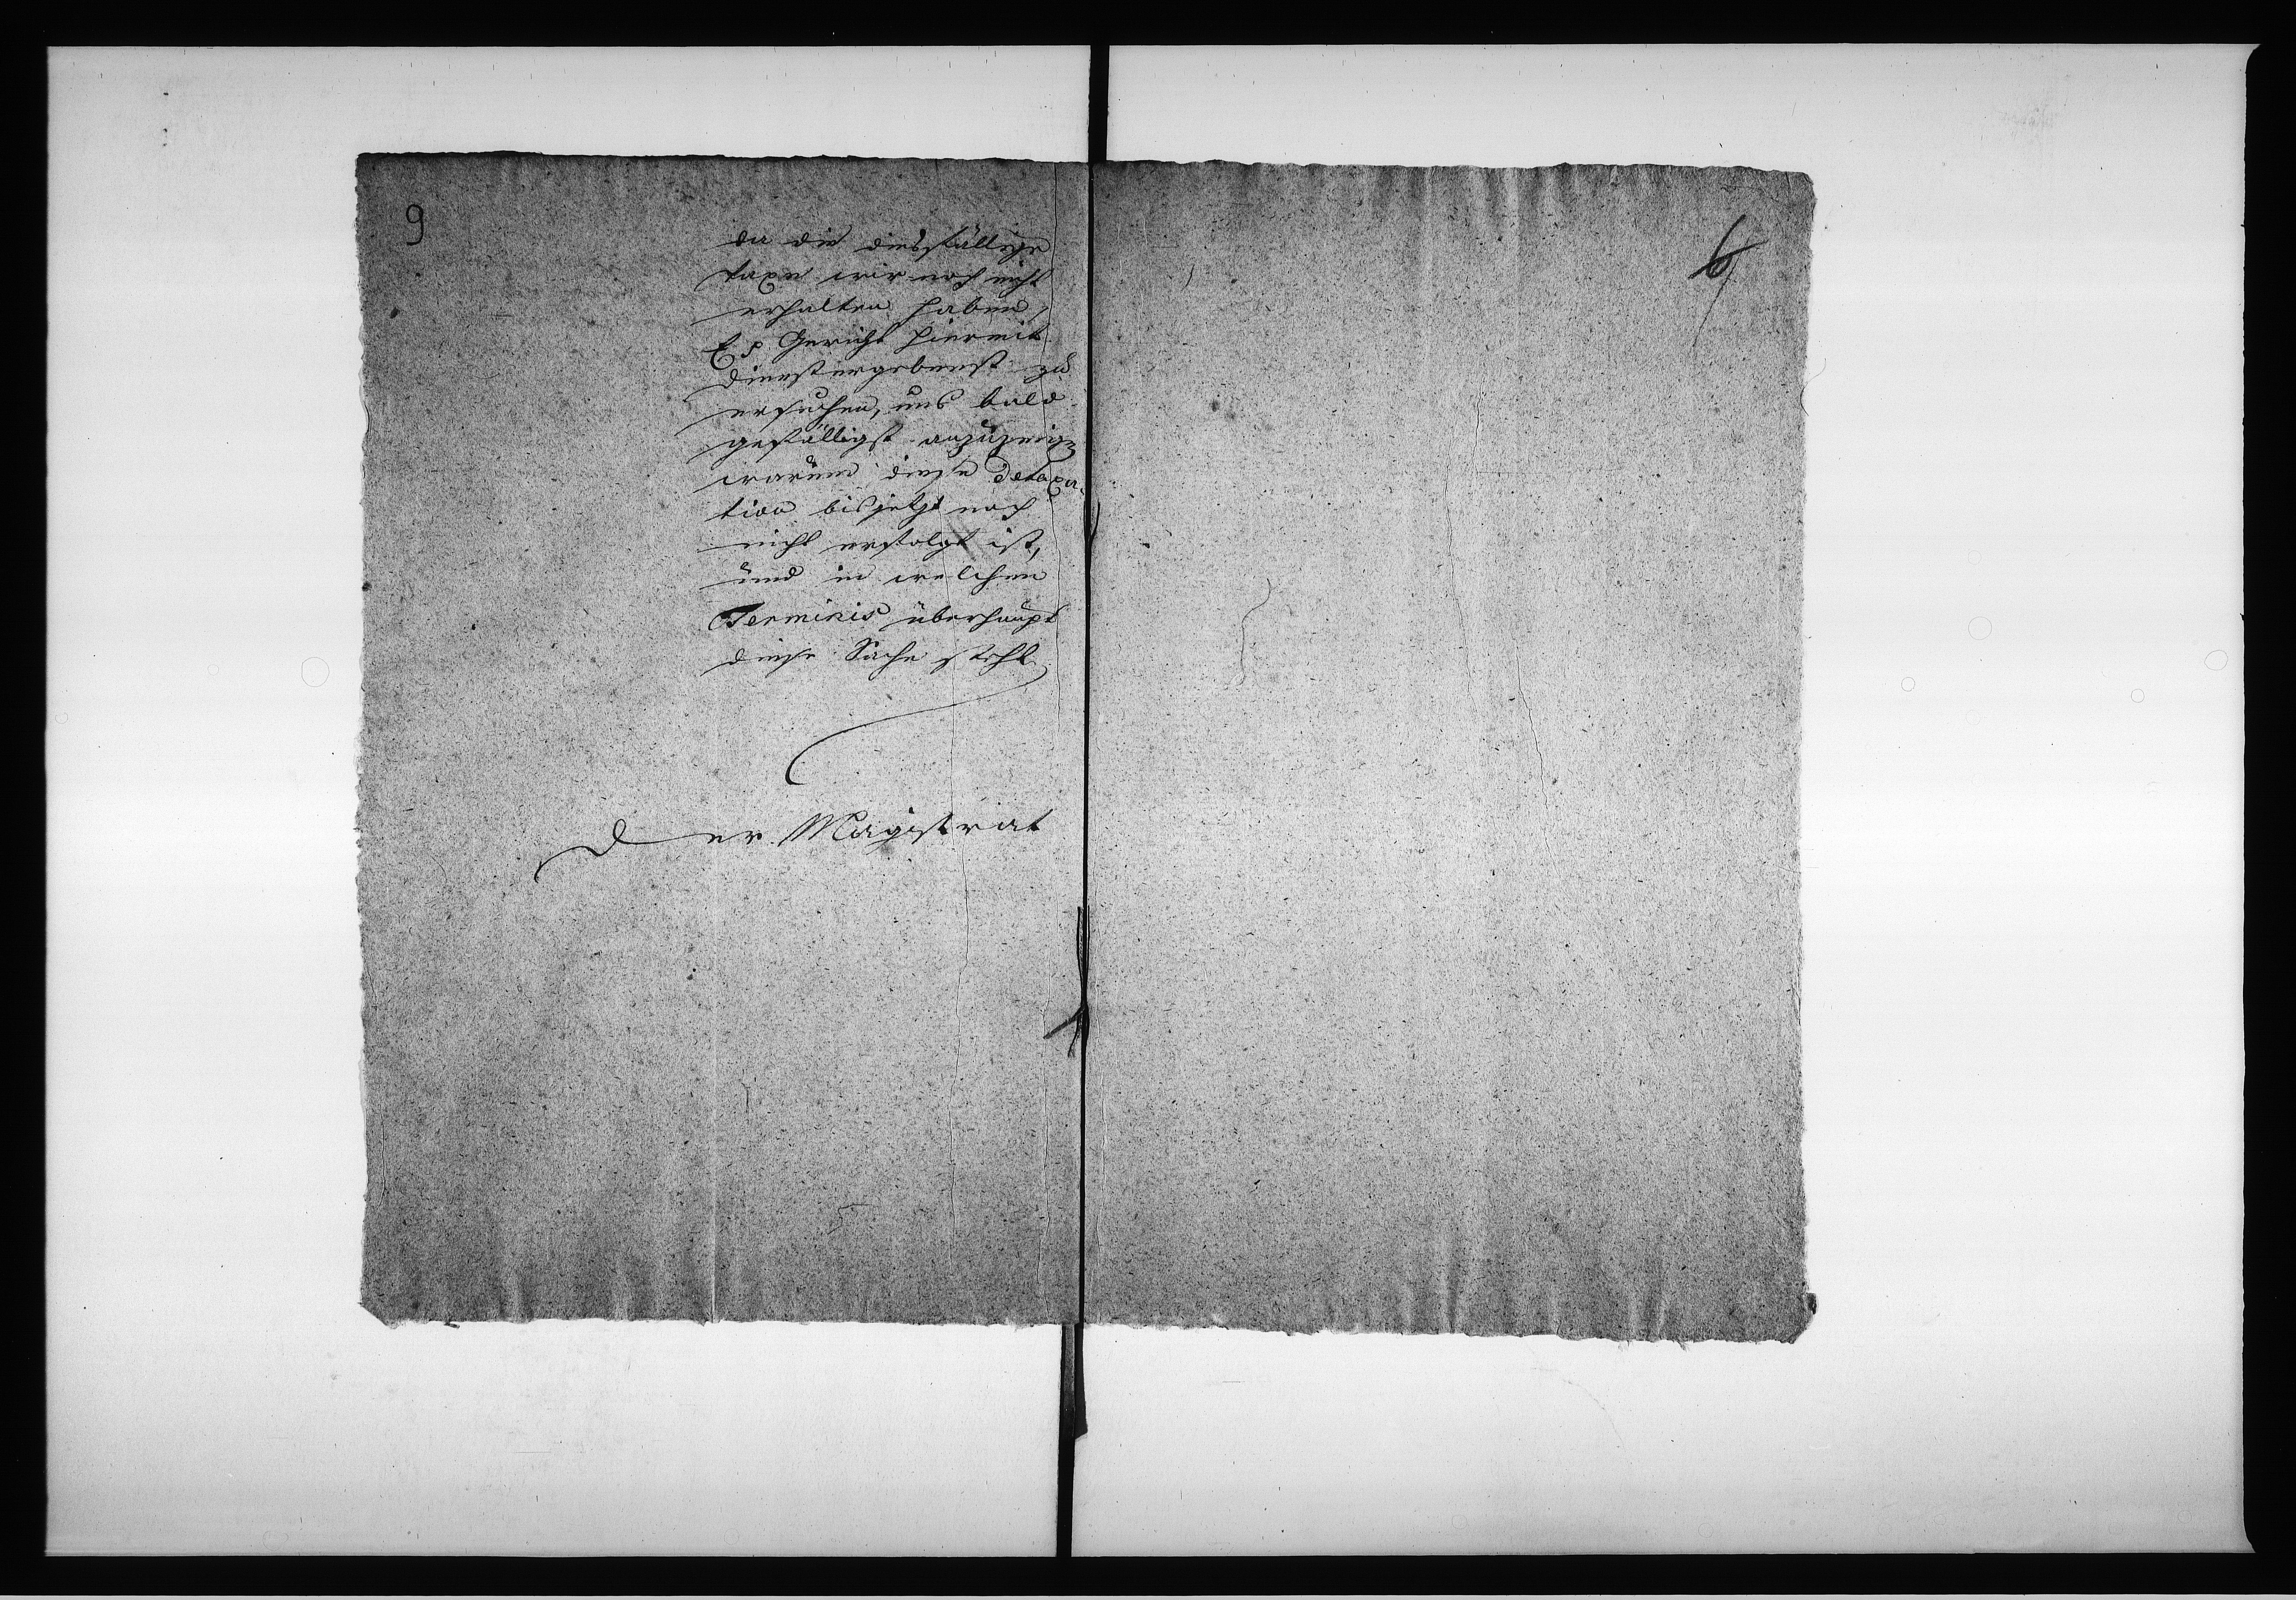 9
da die diesfällige
taxe wir noch nicht
erhalten haben,
E p Gericht hiermit
dienstergebenst zu
ersuchen, uns bald
gefälligst anzuzeigen
warum diese Detaxa-
tion bis jetzt noch
nicht erfolgt ist,
und in welchen
Terminis überhaupt
diese Sache steht
Der Magistrat
6